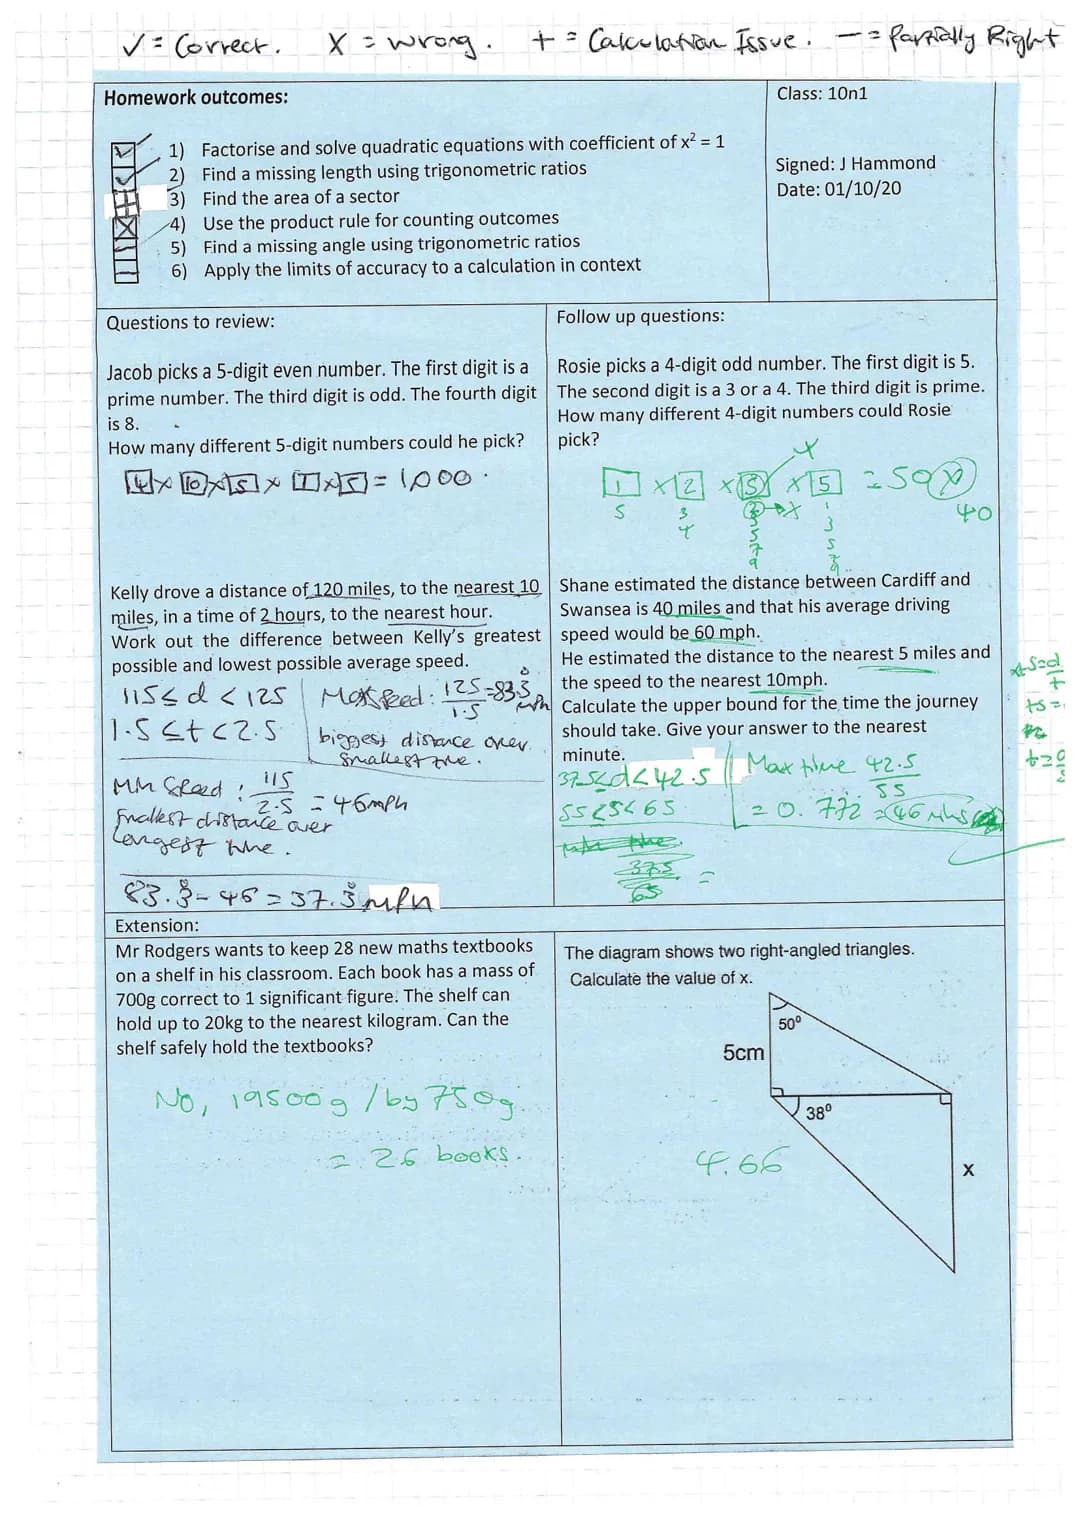 ✓ = Correct. X = wrong. + = Calculation Issue. — = Partially Right
Homework outcomes:
1) Factorise and solve quadratic equations with coefficient of x² = 1
2) Find a missing length using trigonometric ratios
3) Find the area of a sector
4) Use the product rule for counting outcomes
5) Find a missing angle using trigonometric ratios
6) Apply the limits of accuracy to a calculation in context
Class: 10n1
Signed: J Hammond
Date: 01/10/20
Questions to review:
Jacob picks a 5-digit even number. The first digit is a
prime number. The third digit is odd. The fourth digit
is 8.
How many different 5-digit numbers could he pick?
4 x 10 x 5 x 1 x 5 = 1,000.
Follow up questions:
Rosie picks a 4-digit odd number. The first digit is 5.
The second digit is a 3 or a 4. The third digit is prime.
How many different 4-digit numbers could Rosie
pick?
1 x 2 x 5 x 5 = 50 X
40
5
3
4
2
3
5
7
9
1
3
5
7
9
Kelly drove a distance of 120 miles, to the nearest 10
miles, in a time of 2 hours, to the nearest hour.
Work out the difference between Kelly's greatest
possible and lowest possible average speed.
115 ≤ d < 125
1.5 ≤ t < 2.5
Max Speed: 125/1.5 = 83.3̇ mph
biggest distance over
smallest time.
Min Speed: 115/2.5 = 46mph
smallest distance over
longest time.
83.3̇ - 46 = 37.3̇ mph
Shane estimated the distance between Cardiff and
Swansea is 40 miles and that his average driving
speed would be 60 mph.
He estimated the distance to the nearest 5 miles and
the speed to the nearest 10mph.
Calculate the upper bound for the time the journey
should take. Give your answer to the nearest
minute.
37.5 ≤ d < 42.5
55 ≤ s < 65
Max time 42.5/55
= 0.772 = 46 mins
37.5/65 =
s=d/t
ts=
Extension:
Mr Rodgers wants to keep 28 new maths textbooks
on a shelf in his classroom. Each book has a mass of
700g correct to 1 significant figure. The shelf can
hold up to 20kg to the nearest kilogram. Can the
shelf safely hold the textbooks?
No, 19500g / by 750g
= 26 books.
The diagram shows two right-angled triangles.
Calculate the value of x.
50⁰
5cm
38⁰
x
4.66